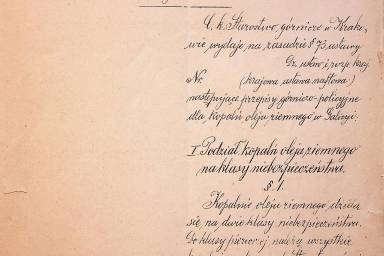 C. k. Starostwo górnicze w Krako-
wie wydaje, na zasadzie § 73, ustawy
Dz. ustaw i rozp. kraj.
Nr. (krajowa ustawa naftowa)
następujące przepisy górniczo-policyjne
dla kopalń oleju ziemnego w Galicyi.
I. Podział kopalń oleju ziemnego
na klasy niebezpieczeństwa.
§ 1.
Kopalnie oleju ziemnego dzielą
się na dwie klasy niebezpieczeństwa.
Do klasy pierwszej należą wszystkie